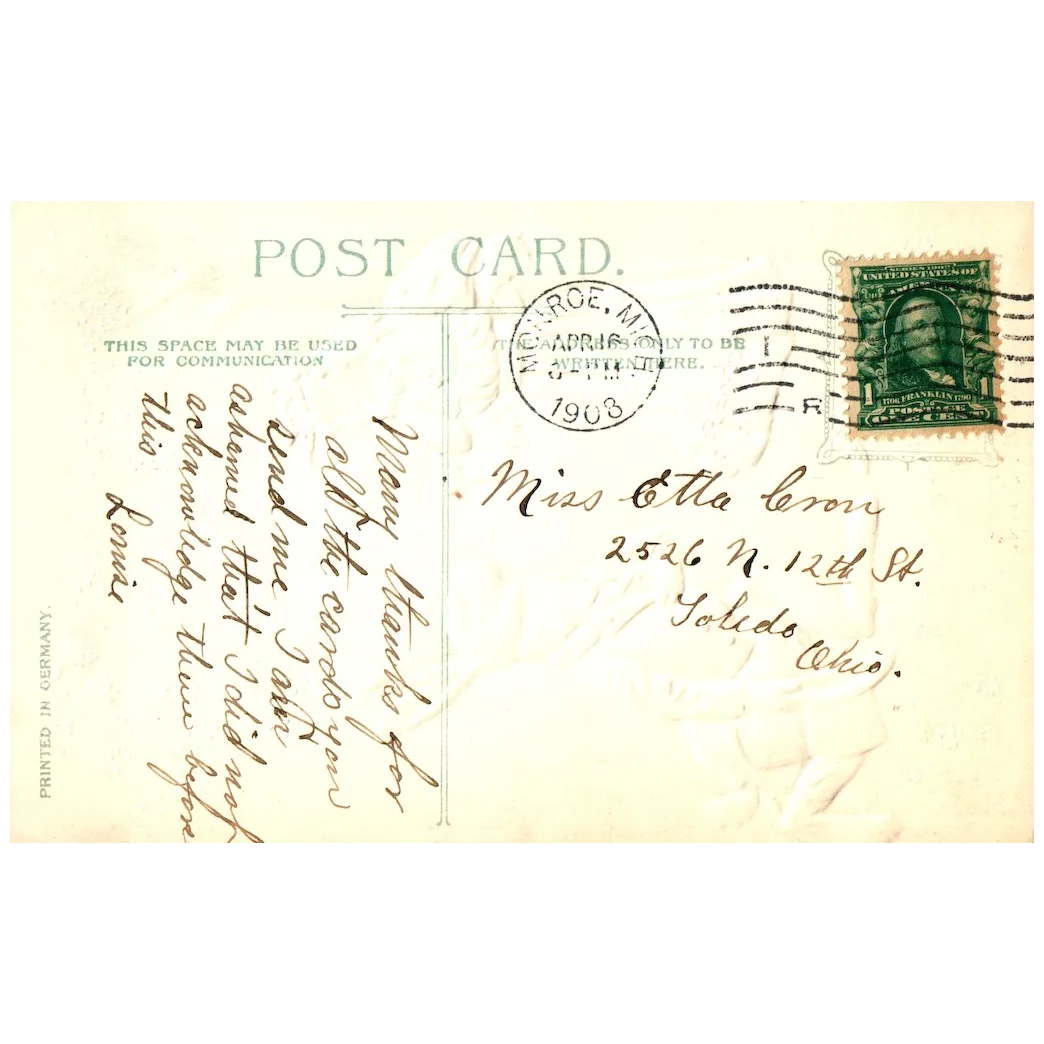 POST CARD.
THIS SPACE MAY BE USED
FOR COMMUNICATION
THE ADDRESS ONLY TO BE
WRITTEN HERE.
MONROE, MICH
APR 16
PM
1908
R
SERIES 1902
UNITED STATES OF
AMERICA
1 1
1706 FRANKLIN 1790
POSTAGE
ONE CENT
Many thanks for
all the cards you
send me I am
ashamed that I did not
acknowledge them before
this
Louise
Miss Etta Cron
2526 N. 12th St.
Toledo
Ohio.
PRINTED IN GERMANY.